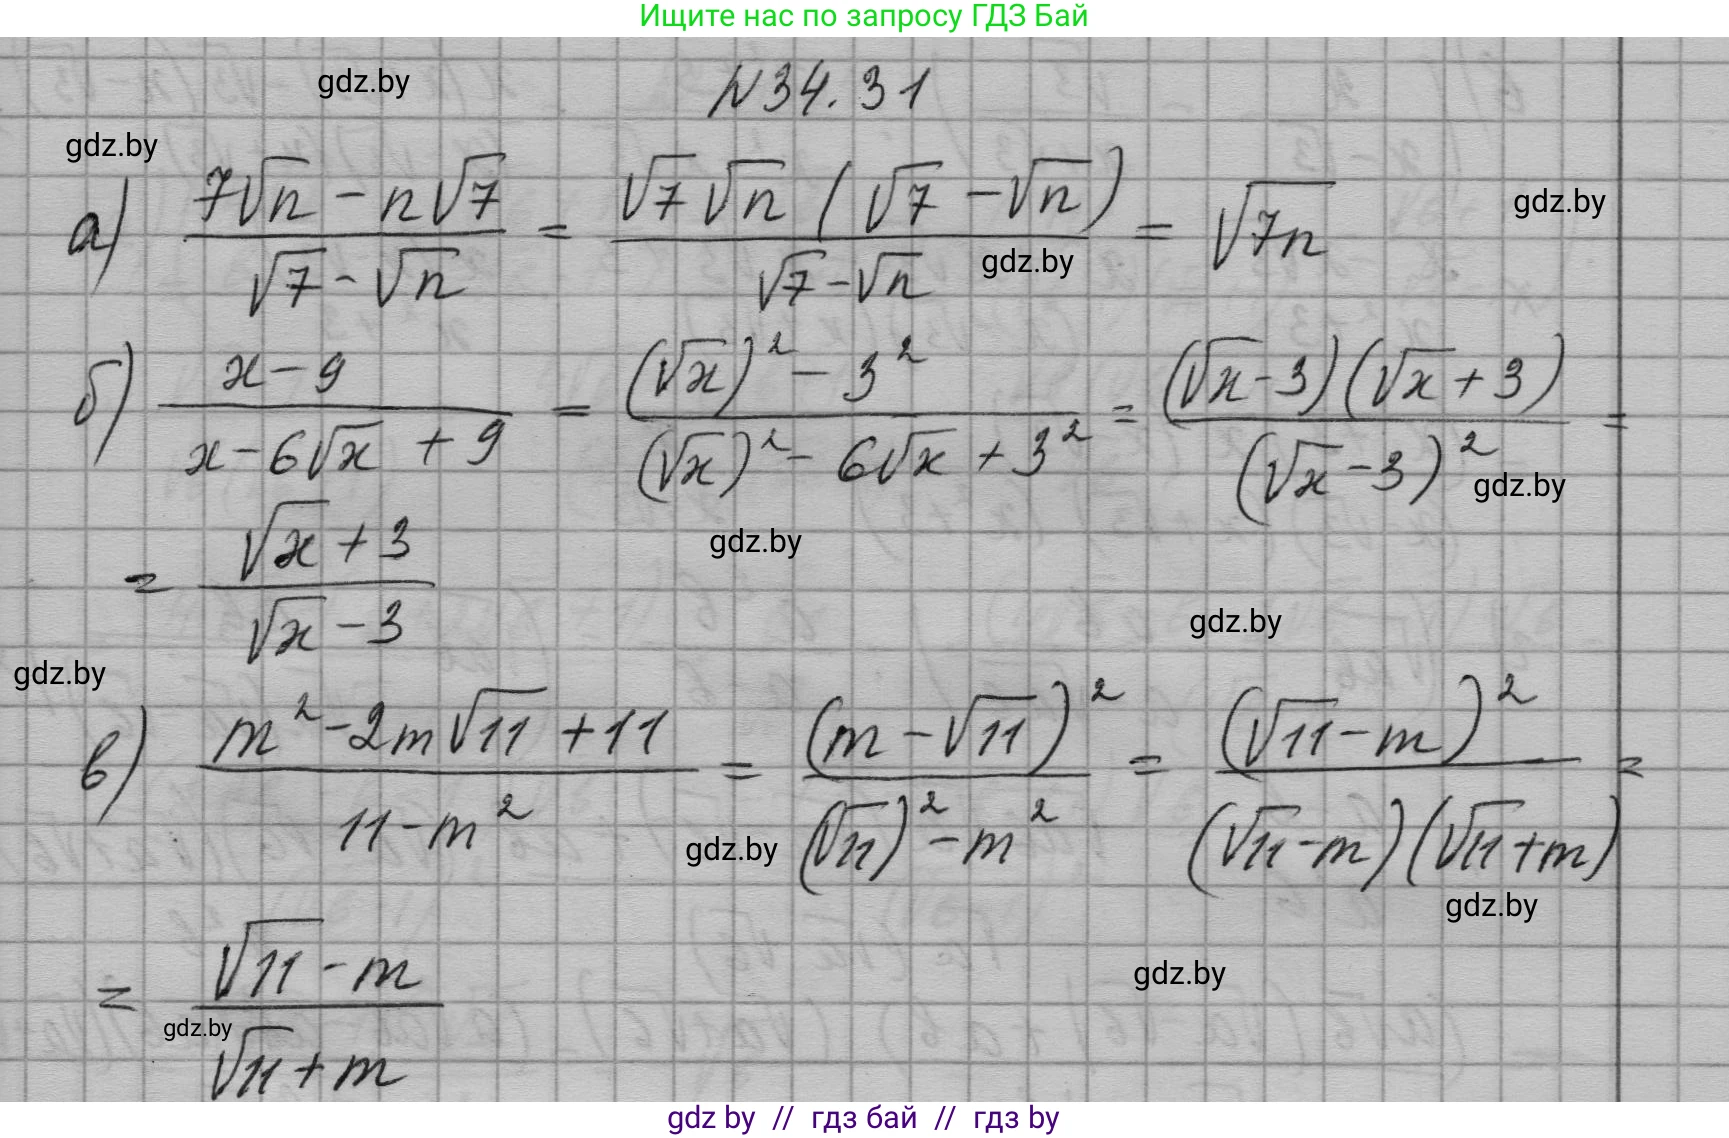 Ищите нас по запросу ГДЗ Бай
gdz.by
№34.31
gdz.by
а) (7√n − n√7)/(√7 − √n) = (√7√n (√7 − √n))/(√7 − √n) = √7n
gdz.by
gdz.by
б) (x − 9)/(x − 6√x + 9) = ((√x)² − 3²)/((√x)² − 6√x + 3²) = ((√x − 3)(√x + 3))/((√x − 3)²) =
gdz.by
= (√x + 3)/(√x − 3)
gdz.by
gdz.by
gdz.by
в) (m² − 2m√11 + 11)/(11 − m²) = ((m − √11)²)/((√11)² − m²) = ((√11 − m)²)/((√11 − m)(√11 + m)) =
gdz.by
gdz.by
= (√11 − m)/(√11 + m)
gdz.by
gdz.by
gdz by // гдз бай // гдз by